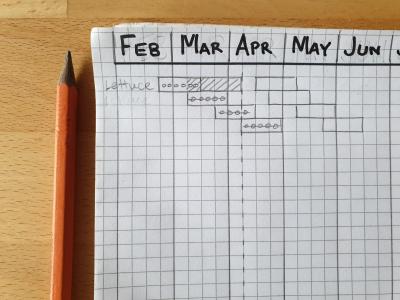 FEB MAR APR MAY JUN
Lettuce